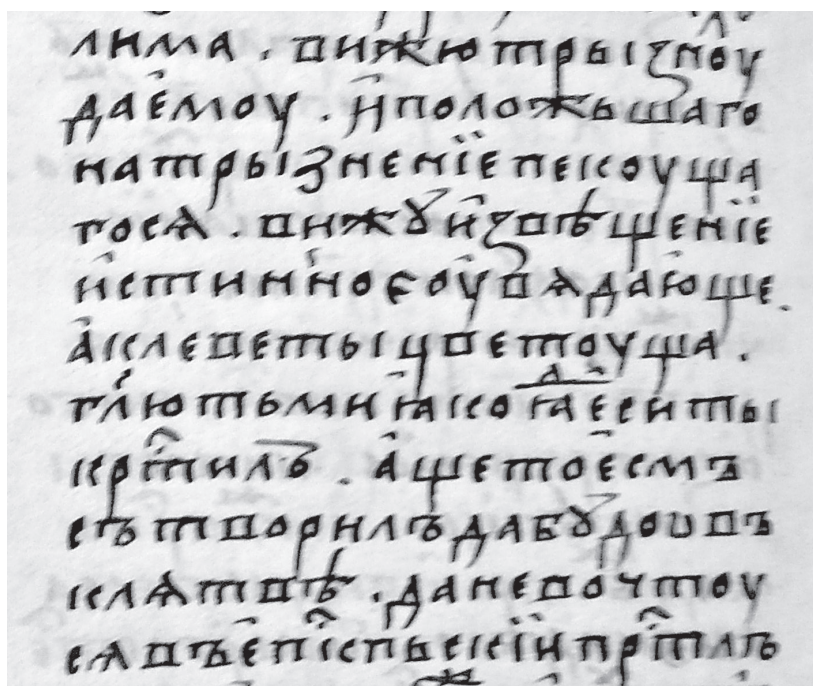 лима . вижю трыꙁноу
даемоу . и положьшаго
на трыꙁненїе пекоуща
госѧ . вижꙋ иꙁвѣщенїе
истинноє оувѧдающе .
а клеветы цветоуща .
гл҃ють ми ꙗко ꙗⷣ еси ты
крⷭ҇тилъ . аще то есмъ
сътворилъ да бꙋдоу въ
клѧтвѣ . да не во чтоу
сѧ въ епⷭ҇кпьскїи прⷭ҇тлъ